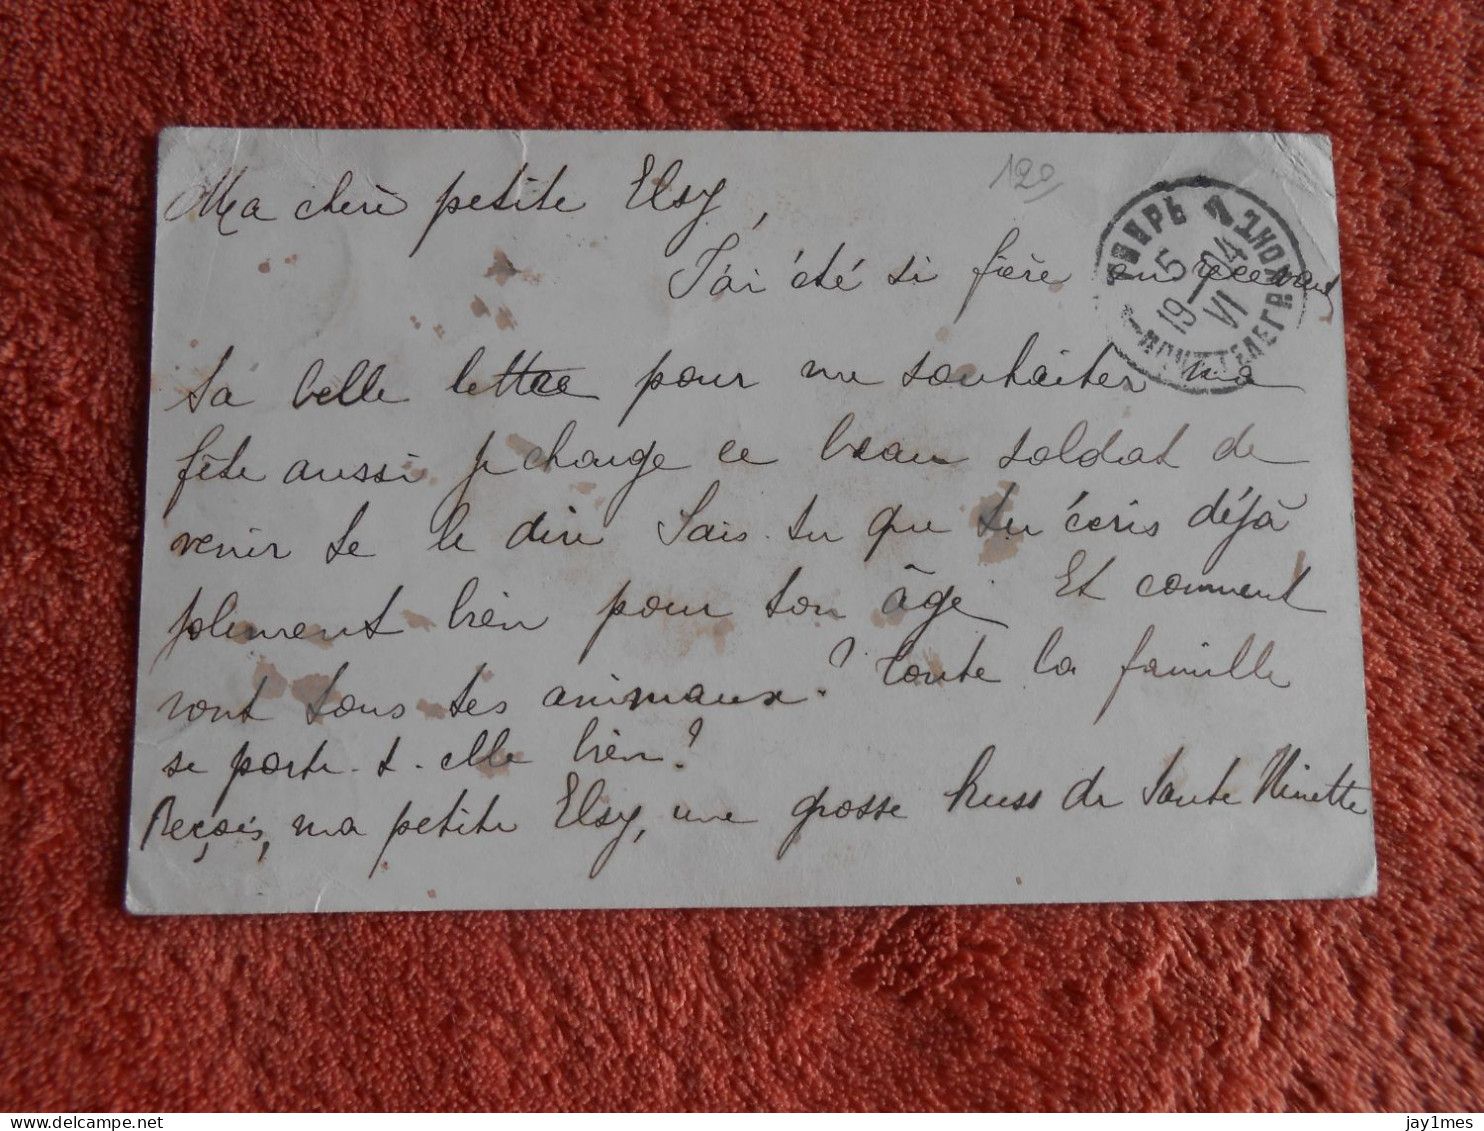 Ma chère petite Elsy,
120
ТВЕРЬ
5 14
19 VI
J'ai été si fière en recevant
ta belle lettre pour me souhaiter ma
fête aussi je charge ce beau soldat de
venir te le dire Sais-tu que tu écris déjà
joliment bien pour ton âge Et comment
vont tous tes animaux? Toute la famille
se porte-t-elle bien?
Reçois, ma petite Elsy, une grosse kuss de Tante Ninette
jay1mes